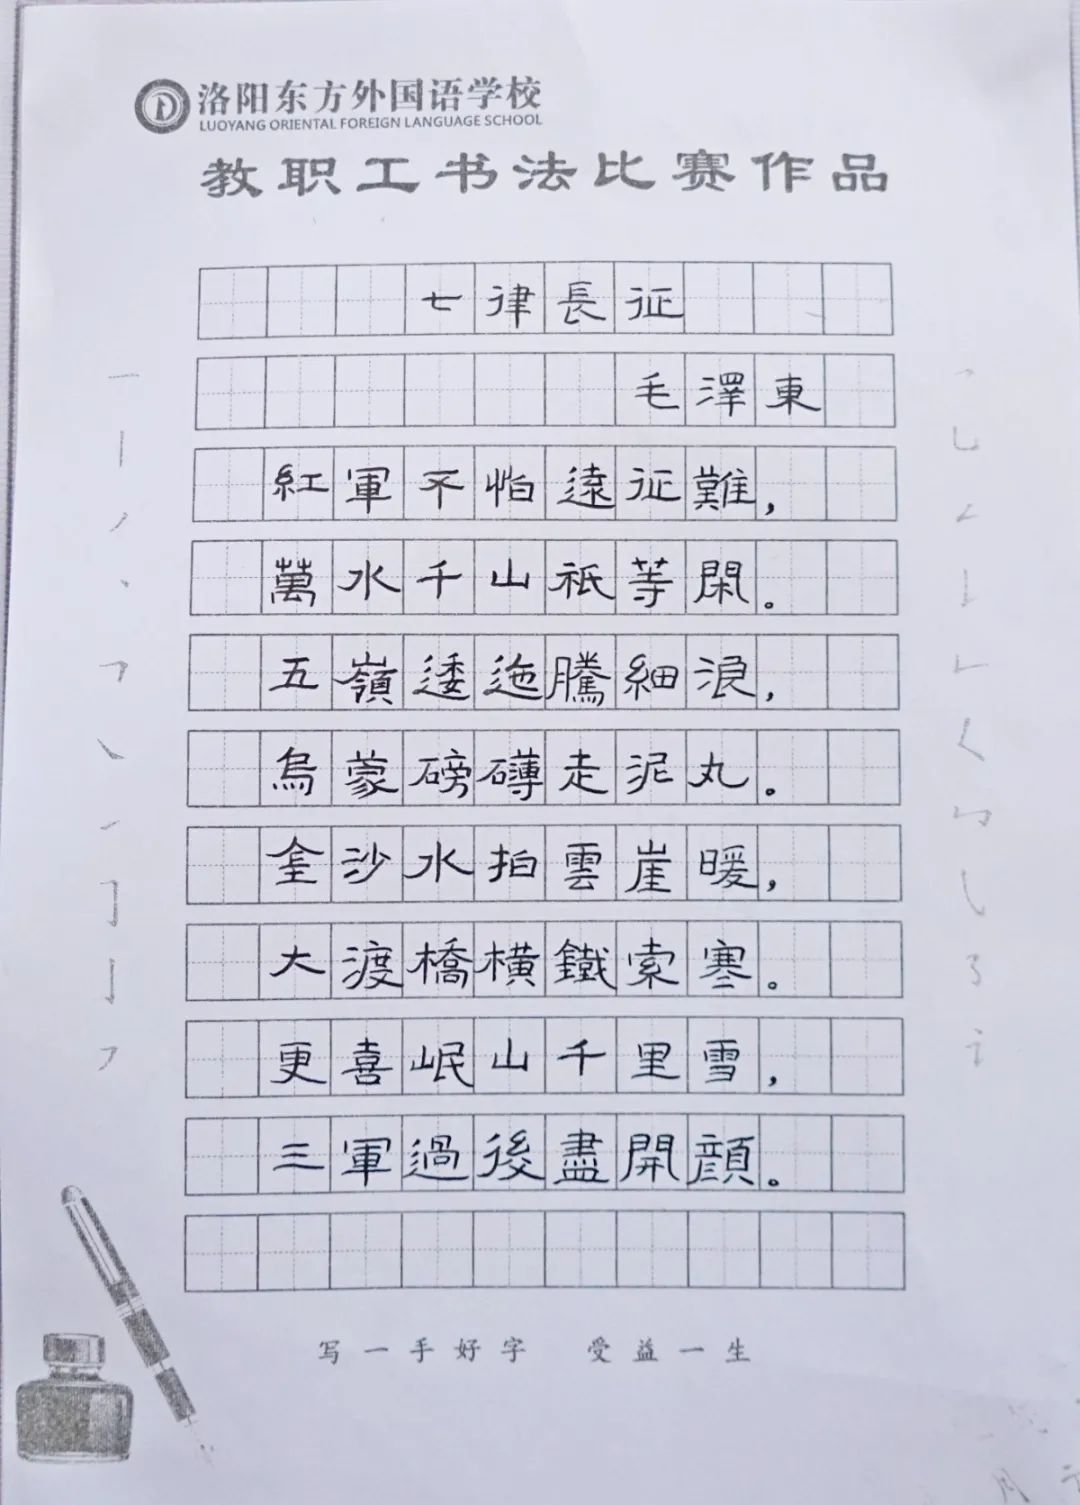 洛阳东方外国语学校
LUOYANG ORIENTAL FOREIGN LANGUAGE SCHOOL
教职工书法比赛作品
七律長征
毛澤東
紅軍不怕遠征難，
萬水千山祇等閑。
五嶺逶迤騰細浪，
烏蒙磅礴走泥丸。
金沙水拍雲崖暖，
大渡橋橫鐵索寒。
更喜岷山千里雪，
三軍過後盡開顔。
写一手好字 受益一生